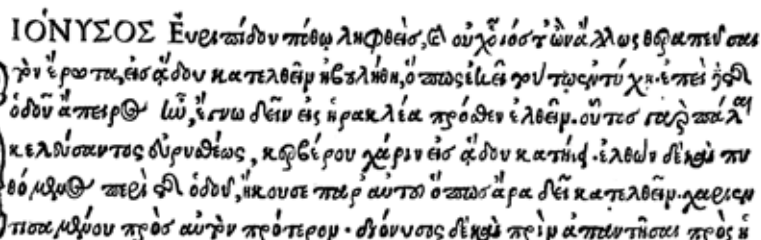 ΙΌΝΥΣΟΣ Εὐριπίδου πόθῳ ληφθεὶς, καὶ οὐχ οἷός τ ὢν ἄλλως θεραπεῦσαι
τὸν ἔρωτα, εἰς ᾅδου κατελθεῖν ἠβουλήθη, ὅπως ἐκεῖ τούτῳ ἐντύχῃ. ἐπεὶ τῆς
ὁδοῦ ἄπειρος ἦν, ἔγνω δεῖν εἰς ἡρακλέα πρόσθεν ἐλθεῖν. οὗτος γὰρ πάλαι
κελεύσαντος εὐρυσθέως, κερβέρου χάριν εἰς ᾅδου κατῄει. ἐλθὼν δὲ καὶ πυ
θόμενος περὶ τῆς ὁδοῦ, ἤκουσε παρ αὐτοῦ ὅπως ἄρα δεῖ κατελθεῖν. χαριεν
τισαμένου πρὸς αὐτὸν πρότερον. διόνυσος δὲ καὶ πρὶν ἀπαντῆσαι πρὸς ἡ